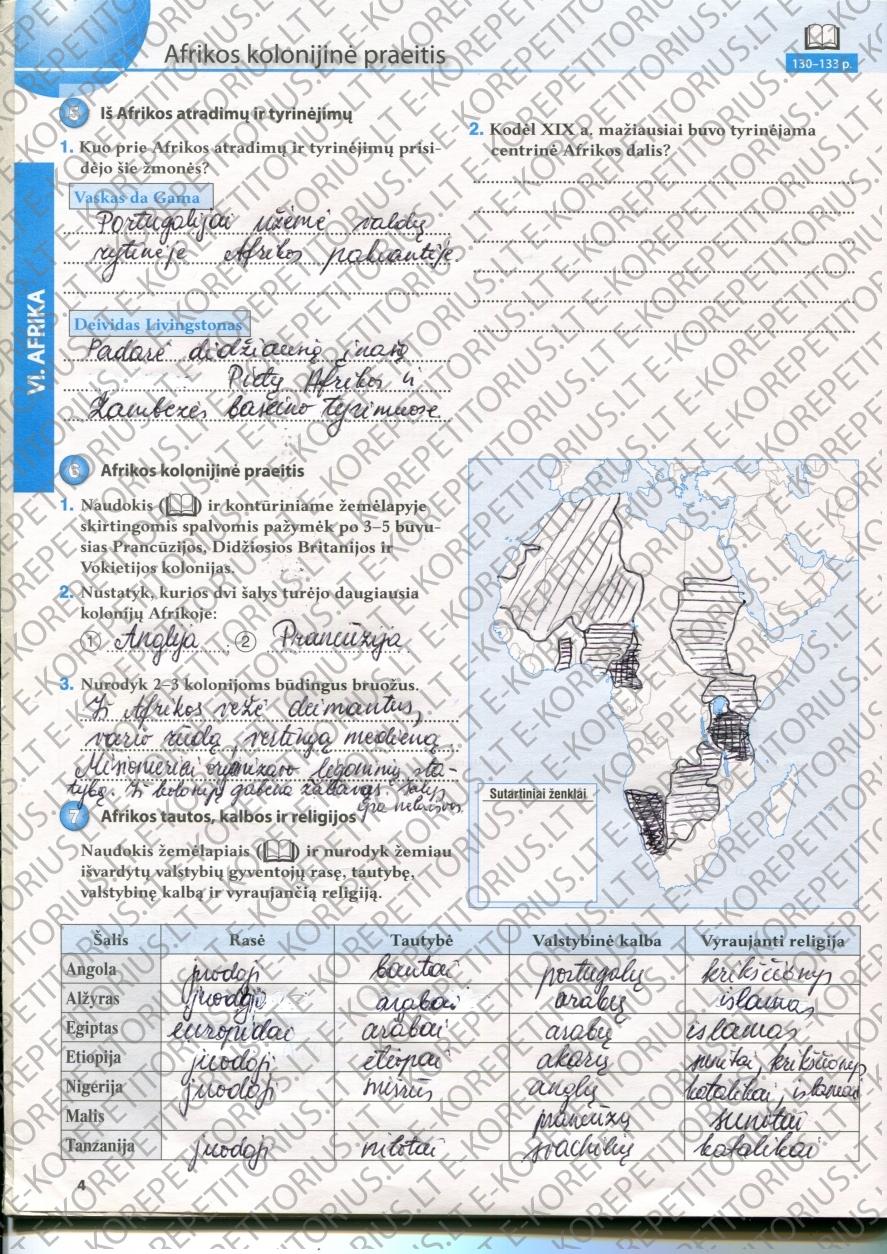 Afrikos kolonijinė praeitis
130–133 p.
VI. AFRIKA
5 Iš Afrikos atradimų ir tyrinėjimų
1. Kuo prie Afrikos atradimų ir tyrinėjimų prisi-
dėjo šie žmonės?
Vaskas da Gama
Portugalijai užėmė valdų
rytinėje Afrikos pakrantėje.
Deividas Livingstonas
Padarė didžiausią įnašą
Pietų Afrikos ir
Zambezės baseino tyrimuose
2. Kodėl XIX a. mažiausiai buvo tyrinėjama
centrinė Afrikos dalis?
6 Afrikos kolonijinė praeitis
1. Naudokis ( ) ir kontūriniame žemėlapyje
skirtingomis spalvomis pažymėk po 3–5 buvu-
sias Prancūzijos, Didžiosios Britanijos ir
Vokietijos kolonijas.
2. Nustatyk, kurios dvi šalys turėjo daugiausia
kolonijų Afrikoje:
1 Anglija ; 2 Prancūzija .
3. Nurodyk 2–3 kolonijoms būdingus bruožus.
Iš Afrikos vežė deimantus,
vario rūdą, vertingą medieną
Misionieriai organizavo ligoninių sta-
tybą. Iš kolonijų gabena žaliavas. Šalys
yra nelaisvos.
Sutartiniai ženklai
7 Afrikos tautos, kalbos ir religijos
Naudokis žemėlapiais ( ) ir nurodyk žemiau
išvardytų valstybių gyventojų rasę, tautybę,
valstybinę kalbą ir vyraujančią religiją.
Šalis Rasė Tautybė Valstybinė kalba Vyraujanti religija
Angola juodoji bantai portugalų krikščionys
Alžyras juodoji arabai arabų islamas
Egiptas europidai arabai arabų islamas
Etiopija juodoji etiopai akarų sunitai, krikščionys
Nigerija juodoji mišrūs anglų katalikai, islamai
Malis prancūzų sunitai
Tanzanija juodoji nilotai svachilių katalikai
4
E-KOREPETITORIUS.LT